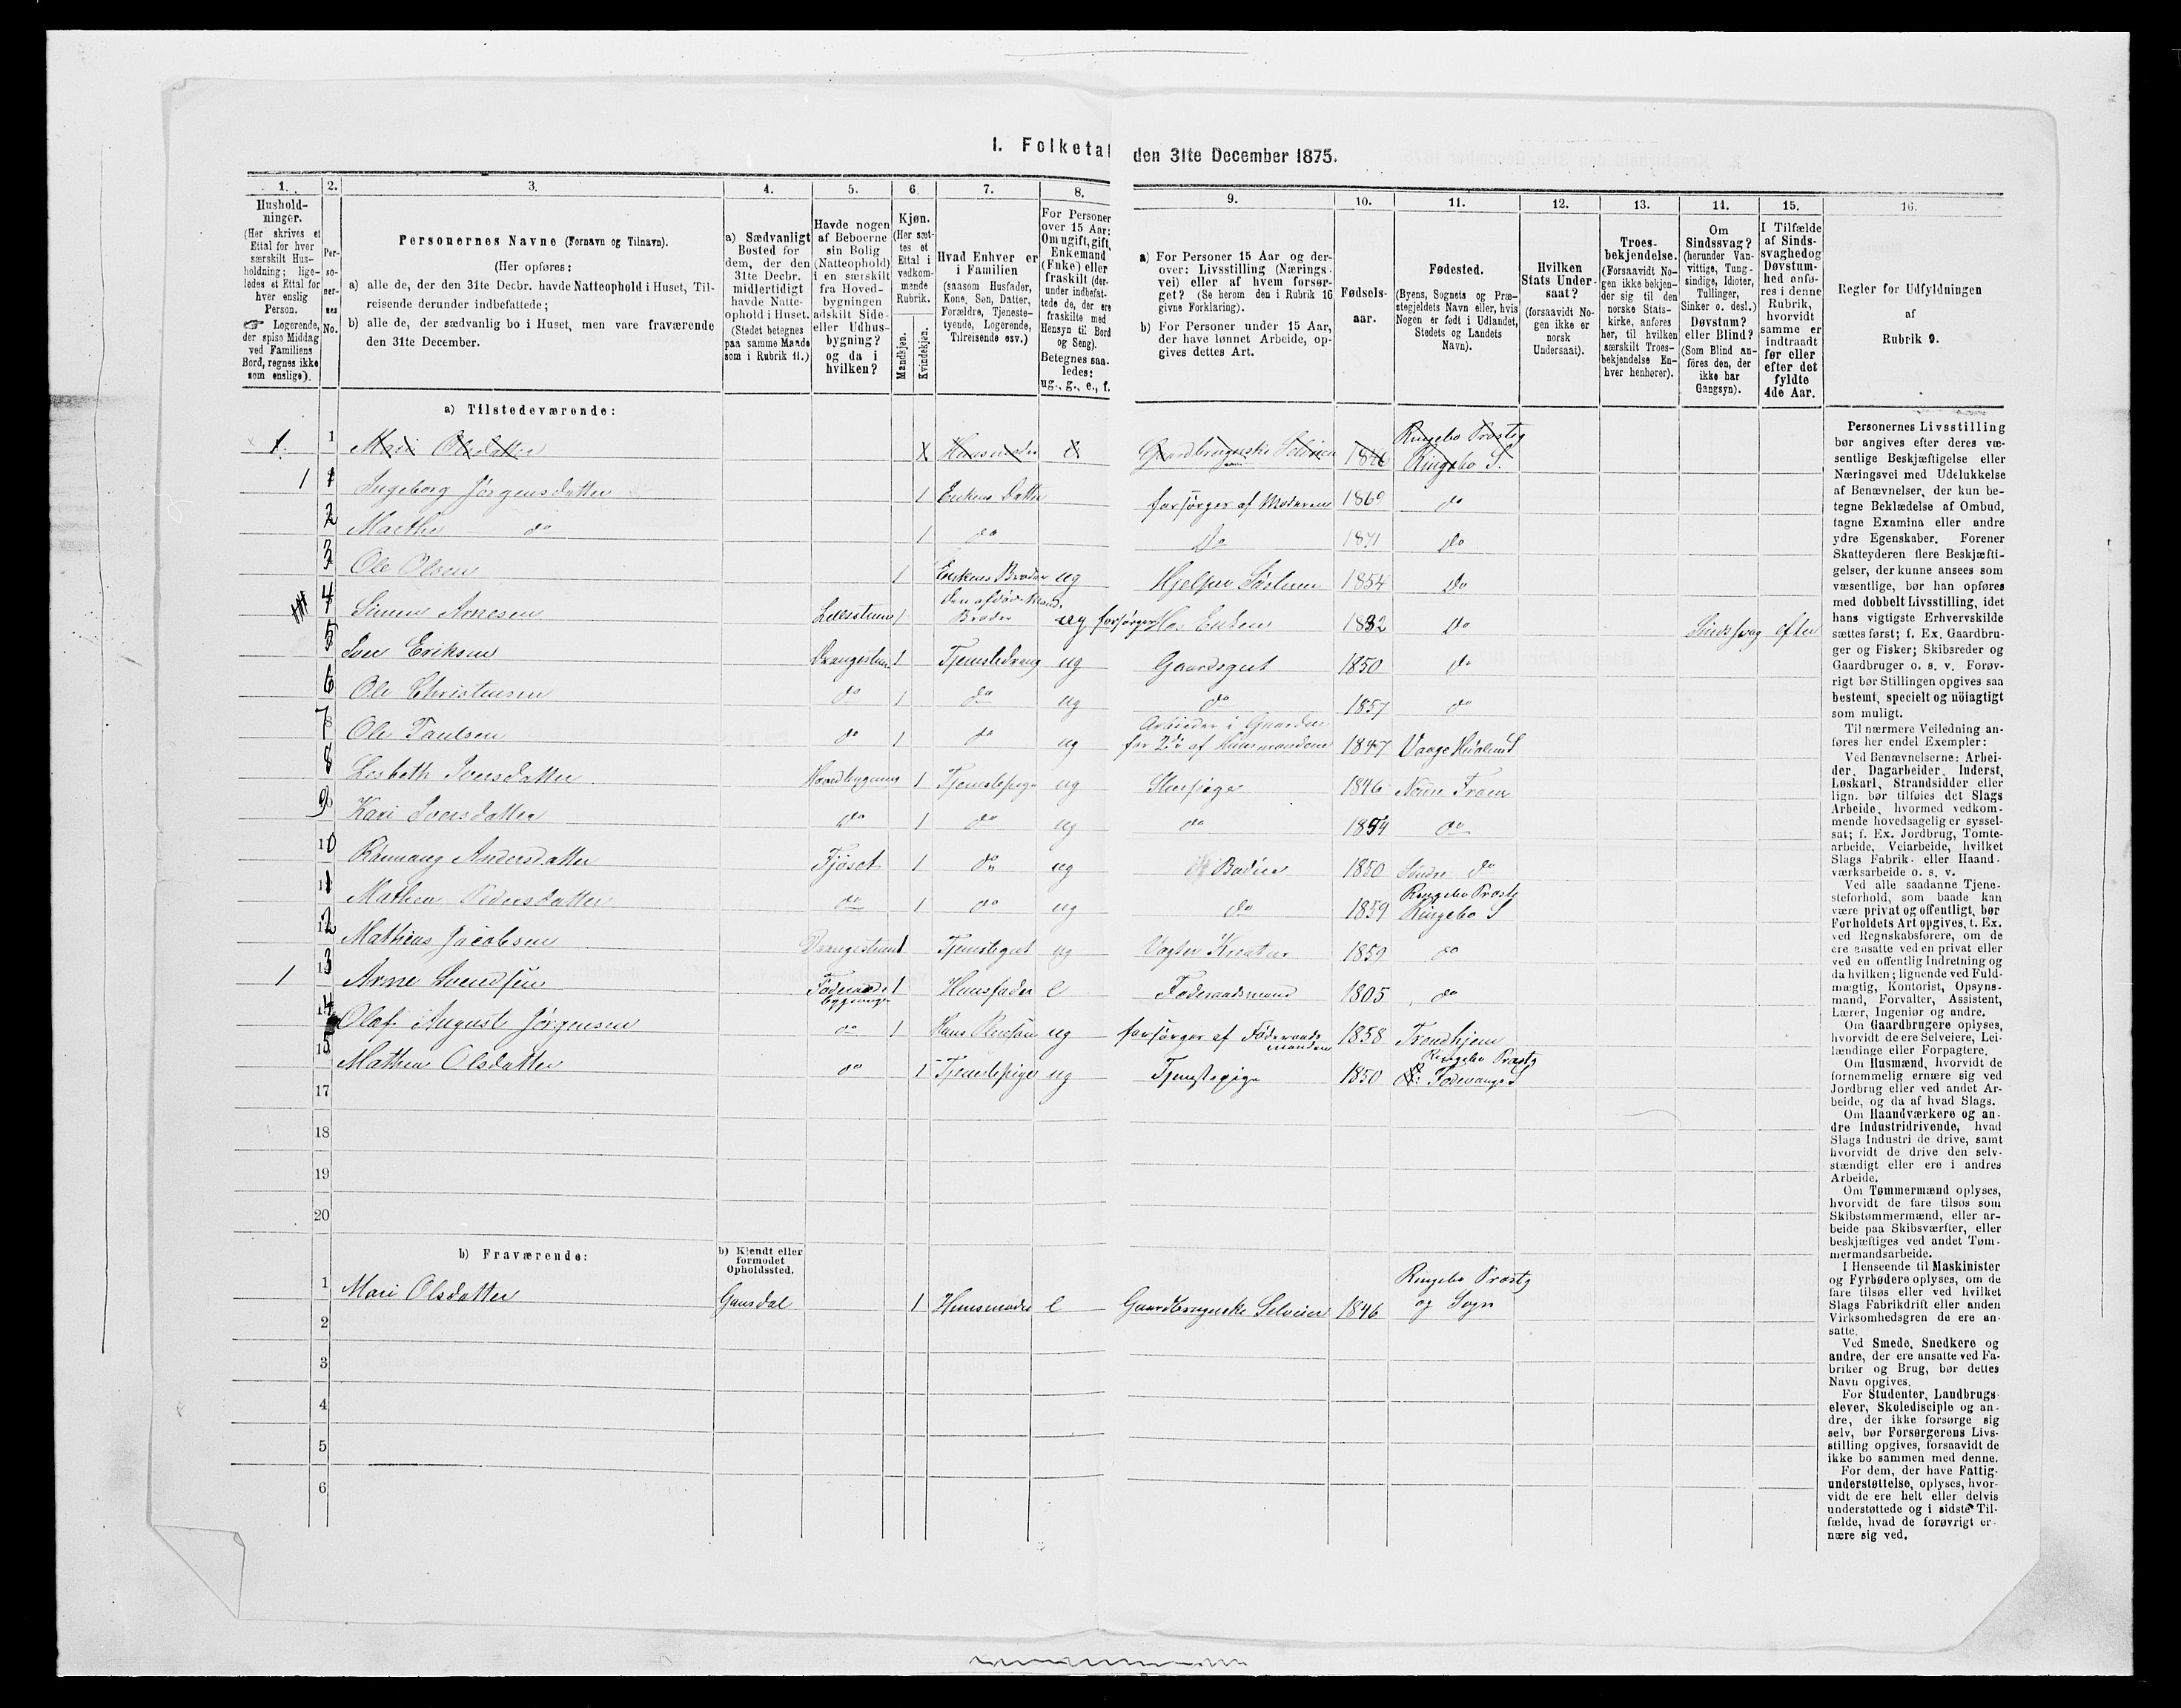 I. Folketal den 31te December 1875.
1. 2. 3. 4. 5. 6. 7. 8. 9. 10. 11. 12. 13. 14. 15. 16.
Hushold-
ninger.
(Her skrives et
Ettal for hver
særskilt Hus-
holdning; lige-
ledes et Ettal for
hver enslig
Person.
☞ Logerende,
der spise Middag
ved Familiens
Bord, regnes ikke
som enslige).
Per-
so-
ner-
nes
No.
Personernes Navne (Fornavn og Tilnavn).
(Her opføres:
a) alle de, der den 31te Decbr. havde Natteophold i Huset, Til-
reisende derunder indbefattede;
b) alle de, der sædvanlig bo i Huset, men vare fraværende
den 31te December.
a) Sædvanligt
Bosted for
dem, der den
31te Decbr.
midlertidigt
havde Natte-
ophold i Huset.
(Stedet betegnes
paa samme Maade
som i Rubrik 11.)
Havde nogen
af Beboerne
sin Bolig
(Natteophold)
i en særskilt
fra Hoved-
bygningen
adskilt Side-
eller Udhus-
bygning?
og da i
hvilken?
Kjøn.
(Her sæt-
tes et
Ettal i
vedkom-
mende
Rubrik.
Mandkjøn.
Kvindekjøn.
Hvad Enhver er
i Familien
(saasom Husfader,
Kone, Søn, Datter,
Forældre, Tjeneste-
tyende, Logerende,
Tilreisende osv.)
For Personer
over 15 Aar:
Om ugift, gift,
Enkemand
(Enke) eller
fraskilt (der-
under indbefat-
tede de, der ere
fraskilte med
Hensyn til Bord
og Seng).
Betegnes saa-
ledes:
ug., g., e., f.
a) For Personer 15 Aar og der-
over: Livsstilling (Nærings-
vei) eller af hvem forsør-
get? (Se herom den i Rubrik 16
givne Forklaring).
b) For Personer under 15 Aar,
der have lønnet Arbeide, op-
gives dettes Art.
Fødsels-
aar.
Fødested.
(Byens, Sognets og Præ-
stegjeldets Navn eller, hvis
Nogen er født i Udlandet,
Stedets og Landets
Navn).
Hvilken
Stats Under-
saat?
(forsaavidt No-
gen ikke er
norsk
Undersaat).
Troes-
bekjendelse.
(Forsaavidt No-
gen ikke bekjen-
der sig til den
norske Stats-
kirke, anføres
her, til hvilken
særskilt Troes-
bekjendelse En-
hver henhører).
Om
Sindssvag?
(herunder Van-
vittige, Tung-
sindige, Idioter,
Tullinger,
Sinker o. desl.)
Døvstum?
eller Blind?
(Som Blind an-
føres den, der
ikke har
Gangsyn).
I Tilfælde
af Sinds-
svaghed og
Døvstum-
hed anfø-
res i denne
Rubrik,
hvorvidt
samme er
indtraadt
før eller
efter det
fyldte
4de Aar.
Regler for Udfyldningen
af
Rubrik 9.
a) Tilstedeværende:
1 1 Mari Olsdatter Husmoder e Gaardbrugerske Selveier 1846 Ringebo Præstg Ringebo S.
1 1 Ingeborg Jörgensdatter 1 Enkens Datter forsörges af Moderen 1869 do
2 Marthe do 1 do Do 1871 Do
3 Ole Olsen 1 Enkens Broder ug Hjelper Söstren 1854 Do
4 Simen Arnesen 1 den afdöde Mands Broder ug forsörges Hos Enken 1832 Do Sindssvag efter
5 Iver Eriksen Drengestuen 1 Tjenestedreng ug Gaardsgut 1850 do
6 Ole Christensen do 1 do ug do 1857 do
7 Ole Paulsen do 1 do ug Arbeider i Gaarden 1847 Vaage
8 Lisbeth Iversdatter Hovedbygning 1 Tjenestepige ug 1846 Nörre Fron
9 Kari Iversdatter do 1 do ug do 1854 do
10 Rannaug Andersdatter Fjöset 1 do ug Budeie 1850 Söndre do
11 Mathea Pedersdatter do 1 do ug do 1859 Ringebo Præstg Ringebo S
12 Mathias Jacobsen Drengestuen 1 Tjenestegut ug Vogter Kreatur 1859 do
1 13 Arne Svendsen Föderaadsbygningen 1 Husfader e Föderaadsmand 1805 do
14 Olaf August Jörgensen do 1 Hans Pleiesön ug forsörges af Föderaadsmanden 1858 Trondhjem
15 Mathea Olsdatter do 1 Tjenestepige ug Tjenestepige 1850 Ringebo Præstg Fodevangs S
17
18
19
20
b) Fraværende:
b) Kjendt eller
formodet
Opholdssted.
1 Mari Olsdatter Gausdal 1 Husmoder e Gaardbrugerske Selveier 1846 Ringebo Præstg og Sogn
2
3
4
5
6
Personernes Livsstilling
bør angives efter deres væ-
sentlige Beskjæftigelse eller
Næringsvei med Udelukkelse
af Benævnelser, der kun be-
tegne Beklædelse af Ombud,
tagne Examina eller andre
ydre Egenskaber. Forener
Skatteyderen flere Beskjæfti-
gelser, der kunne ansees som
væsentlige, bør han opføres
med dobbelt Livsstilling, idet
hans vigtigste Erhvervskilde
sættes først; f. Ex. Gaardbru-
ger og Fisker; Skibsreder og
Gaardbruger o. s. v. Forøv-
rigt bør Stillingen opgives saa
bestemt, specielt og nöiagtigt
som muligt.
Til nærmere Veiledning an-
føres her endel Exempler:
Ved Benævnelserne: Arbei-
der, Dagarbeider, Inderst,
Løskarl, Strandsidder eller
lign. bør tilføies det Slags
Arbeide, hvormed vedkom-
mende hovedsagelig er syssel-
sat; f. Ex. Jordbrug, Tomte-
arbeide, Veiarbeide, hvilket
Slags Fabrik- eller Haand-
værksarbeide o. s. v.
Ved alle saadanne Tjene-
steforhold, som baade kan
være privat og offentligt, bør
Forholdets Art opgives, t. Ex.
ved Regnskabsførere, om de
ere ansatte ved en privat eller
ved en offentlig Indretning og
da hvilken; lignende ved Fuld-
mægtig, Kontorist, Opsyns-
mand, Forvalter, Assistent,
Lærer, Ingeniør og andre.
Om Gaardbrugere oplyses,
hvorvidt de ere Selveiere, Lei-
lændinge eller Forpagtere.
Om Husmænd, hvorvidt de
fornemmelig ernære sig ved
Jordbrug eller ved andet Ar-
beide, og da af hvad Slags.
Om Haandværkere og an-
dre Industridrivende, hvad
Slags Industri de drive, samt
hvorvidt de drive den selv-
stændigt eller ere i andres
Arbeide.
Om Tømmermænd oplyses,
hvorvidt de fare tilsøs som
Skibstømmermænd, eller ar-
beide paa Skibsværfter, eller
beskjæftiges ved andet Tøm-
mermandsarbeide.
I Henseende til Maskinister
og Fyrbødere oplyses, om de
fare tilsøs eller ved hvilket
Slags Fabrikdrift eller anden
Virksomhedsgren de ere an-
satte.
Ved Smede, Snedkere og
andre, der ere ansatte ved Fa-
briker og Brug, bør dettes
Navn opgives.
For Studenter, Landbrugs-
elever, Skoledisciple og an-
dre, der ikke forsørge sig
selv, bør Forsørgerens Livs-
stilling opgives, forsaavidt de
ikke bo sammen med denne.
For dem, der have Fattig-
understøttelse, oplyses, hvor-
vidt de ere helt eller delvis
understøttede og i sidste Til-
fælde, hvad de forøvrigt er-
nære sig ved.